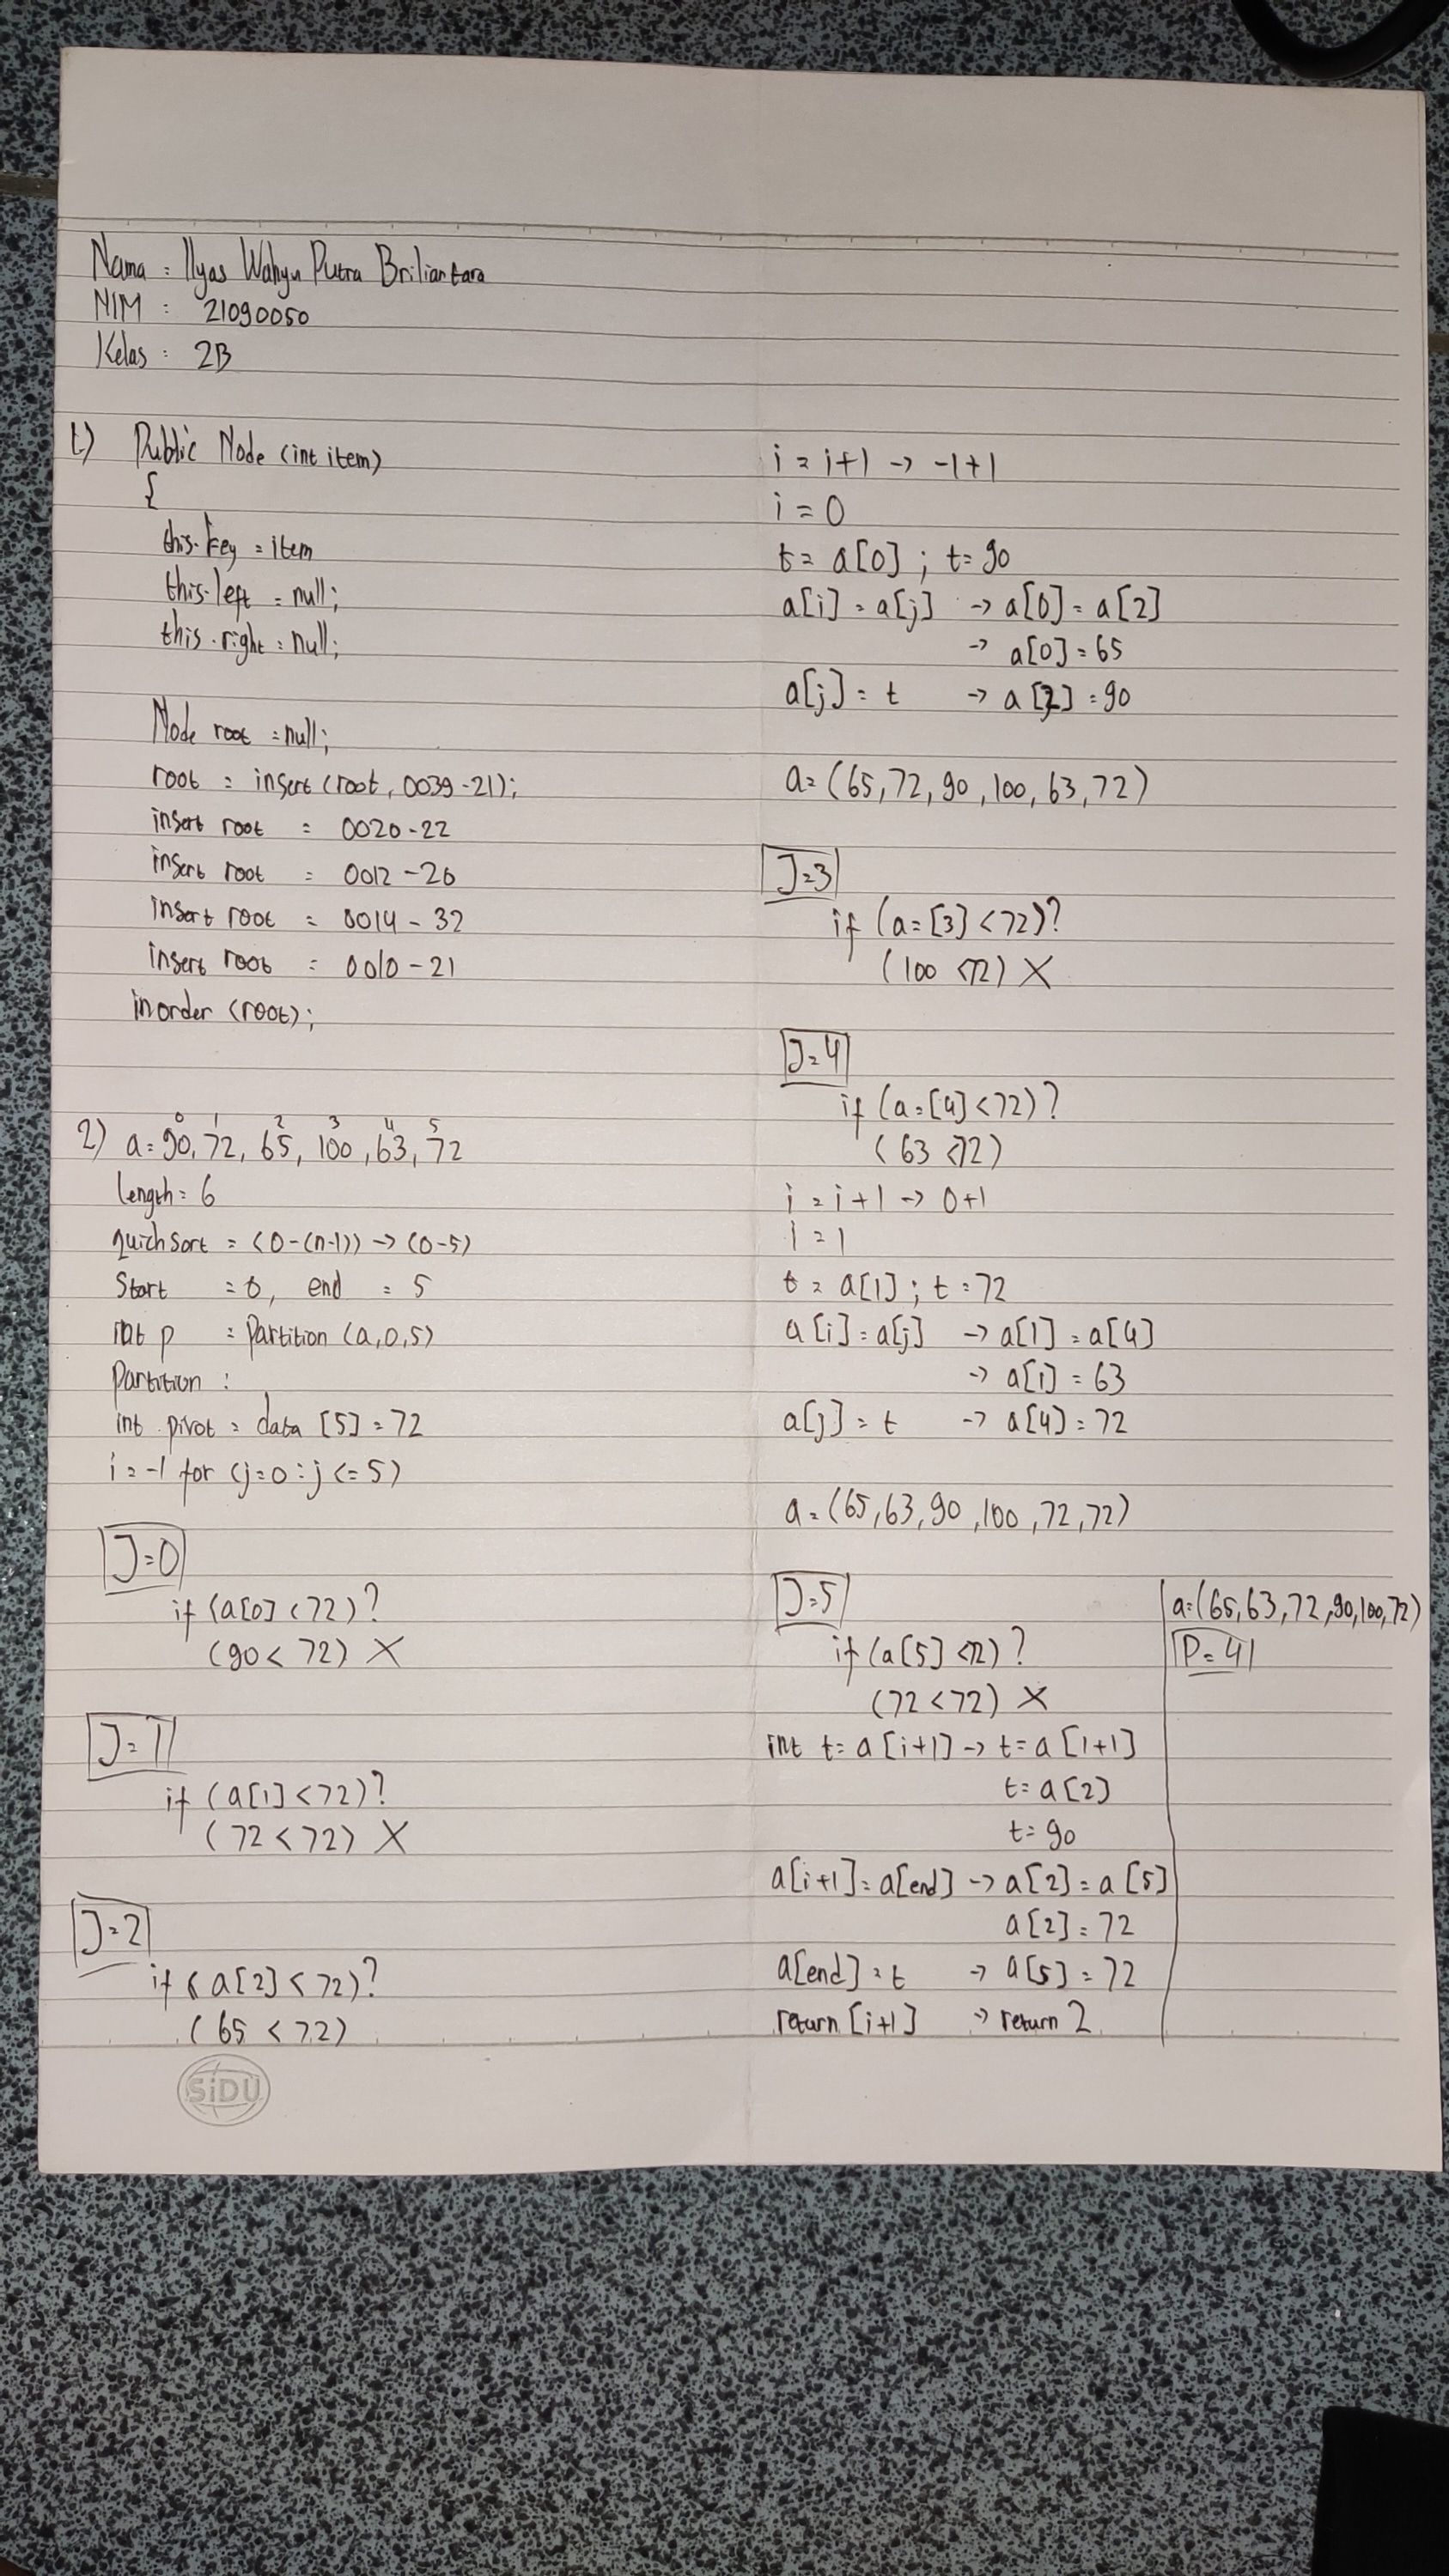 Nama : Ilyas Wahyu Putra Briliantara
NIM : 21090050
Kelas : 2B
1) Public Node (int item)
{
this.key = item
this.left = null;
this.right = null;
Node root = null;
root = insert (root, 0039-21);
insert root = 0020-22
insert root = 0012-26
insert root = 0014-32
insert root = 0010-21
inorder (root);
0 1 2 3 4 5
2) a = 90, 72, 65, 100, 63, 72
length = 6
quichsort = (0-(n-1)) -> (0-5)
Start = 0, end = 5
int p = Partition (a,0,5)
Partition :
int pivot = data [5] = 72
i = -1 for (j=0 : j <= 5)
J=0
if (a[0] < 72)?
(90 < 72) X
J=1
if (a[1] < 72)?
(72 < 72) X
J=2
if (a[2] < 72)?
(65 < 72)
SiDU
i = i+1 -> -1+1
i = 0
t = a[0] ; t = 90
a[i] = a[j] -> a[0] = a[2]
-> a[0] = 65
a[j] = t -> a[2] = 90
a = (65, 72, 90, 100, 63, 72)
J=3
if (a=[3] < 72)?
(100 < 72) X
J=4
if (a=[4] < 72)?
(63 < 72)
i = i+1 -> 0+1
i = 1
t = a[1] ; t = 72
a[i] = a[j] -> a[1] = a[4]
-> a[1] = 63
a[j] = t -> a[4] = 72
a = (65, 63, 90, 100, 72, 72)
J=5
if (a[5] < 72)?
(72 < 72) X
int t = a[i+1] -> t = a[1+1]
t = a[2]
t = 90
a[i+1] = a[end] -> a[2] = a[5]
a[2] = 72
a[end] = t -> a[5] = 72
return [i+1] -> return 2
a = (65, 63, 72, 90, 100, 72)
P = 4